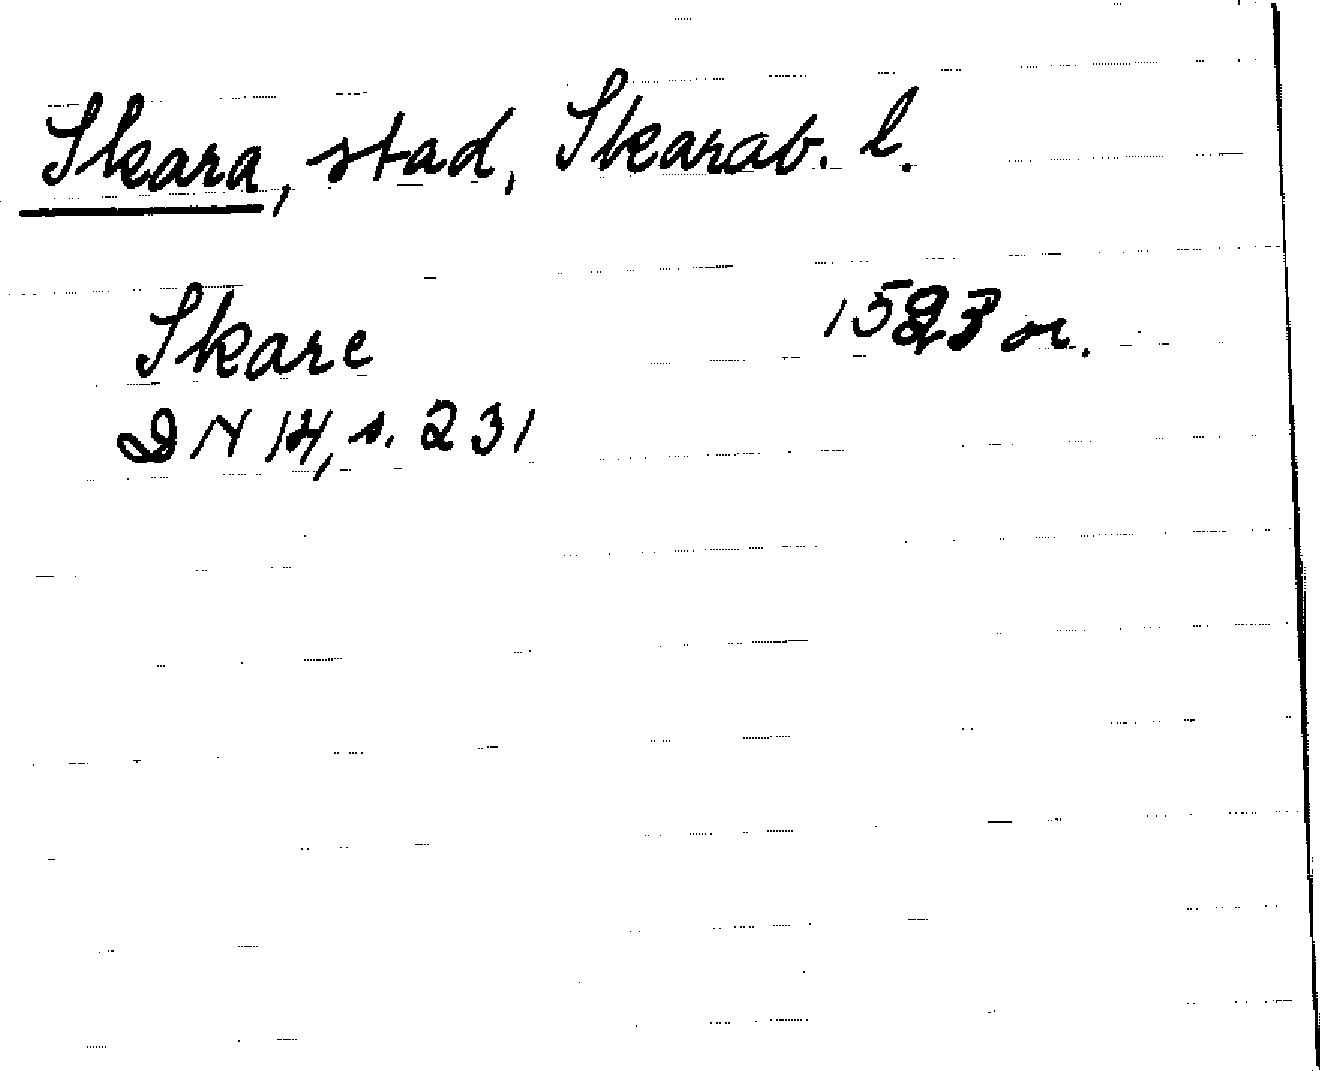 Skara, stad, Skarab. l.
Skare 1523 or.
DN 14, s. 231